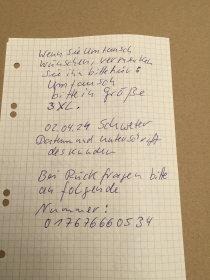 Wenn Sie Umtausch
wünschen, vermerken
Sie ihn bitte hier:
Umtausch
bitte in größe
3XL.
02.04.24 Schuster
Datum und unterschrift
des kunden
Bei Rückfragen bitte
an folgende
Nummer:
017676660534